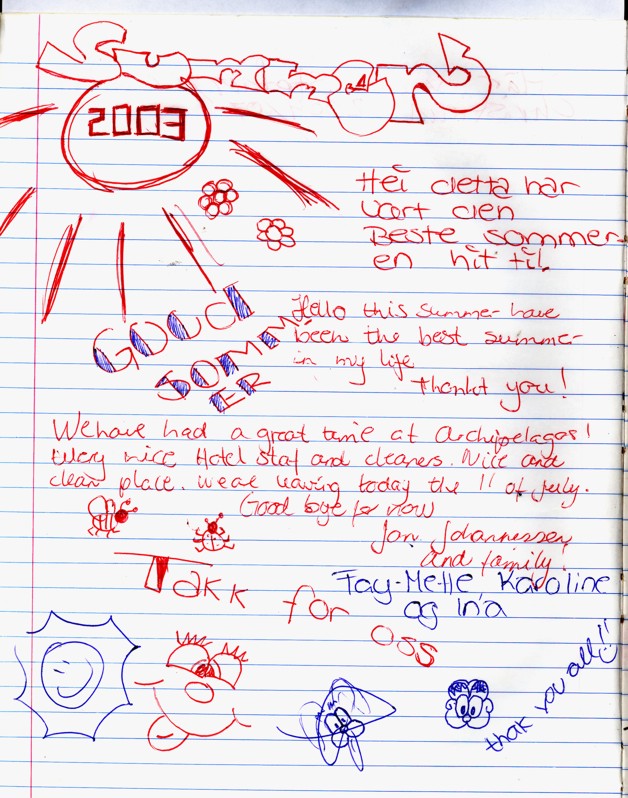 Summer
2003
Hei detta har
vært den
Beste sommer-
en hit til
GOOD
SOMM
ER
Hello this summer have
been the best summer
in my life
Thankt you!
We have had a great time at Archipelagos!
Very nice Hotel staf and cleaners. Nice and
clean place. We are leaving today the 11 of july.
Good bye for now
Jon Johannessen
and family!
Takk for oss
Fay-Mette Karoline
og Ina
thak you all!!